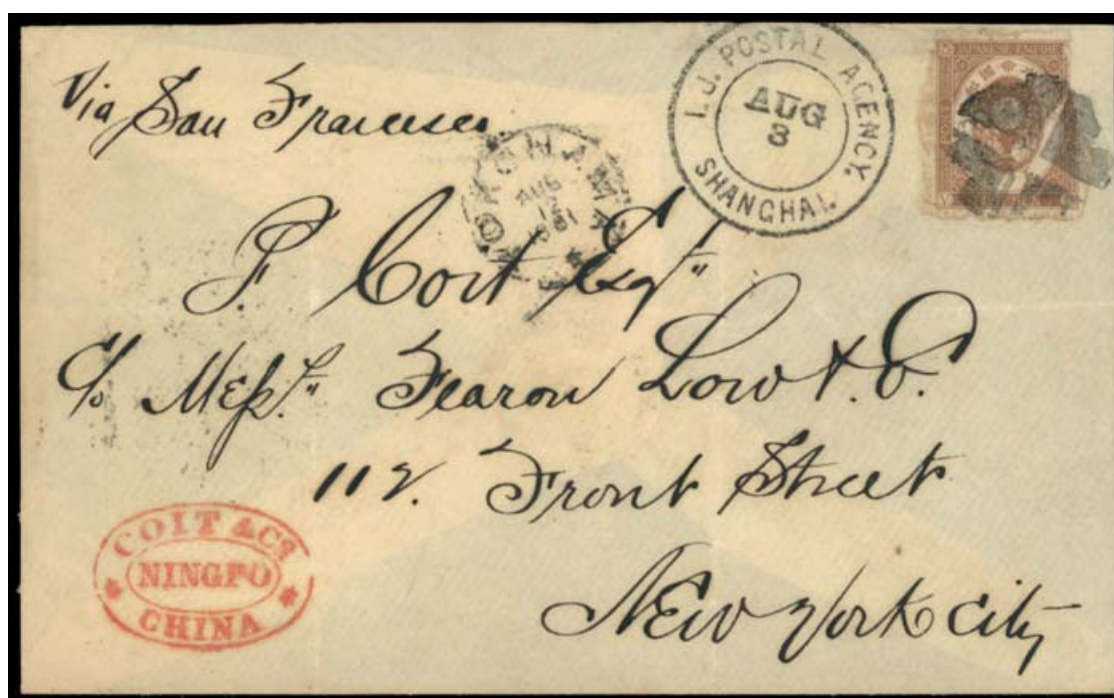 Via San Francisco
I. J. POSTAL AGENCY.
AUG
8
SHANGHAI.
JAPANESE EMPIRE
YOKOHAMA
AUG
12
1881
F. Coit Esqr
c/o Messrs Fearon Low & Co.
112. Front Street
New York City
COIT & Co
NINGPO
CHINA